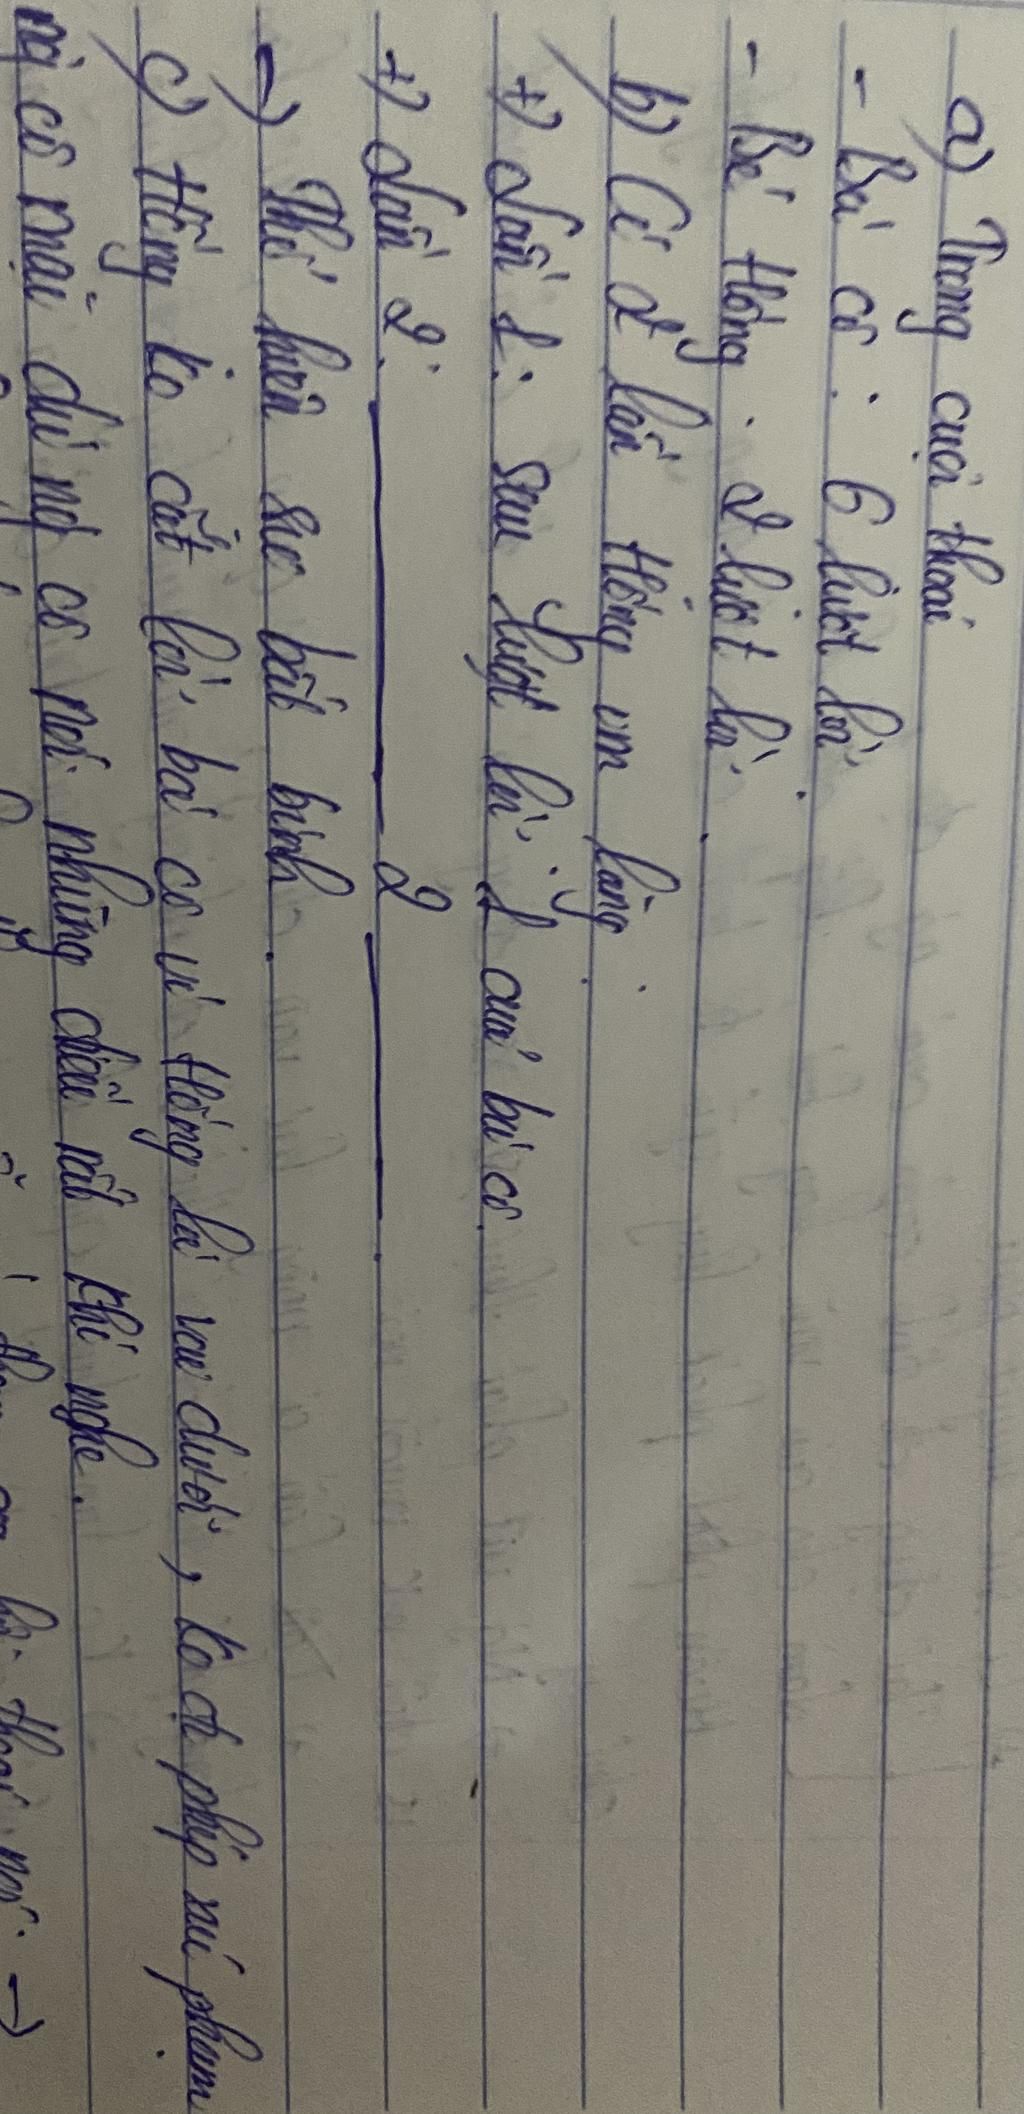 a) Trong cuội thoại
- Bà cô : 6 lượt lời
- Bé Hồng : 2 lượt lời
b) Có 2 lần Hồng im lặng
+) Lần 1: sau lượt lời 1 của bà cô
+) Lần 2: ——— 2 ———
→ Thể hiện sự bất bình
c) Hồng ko cắt lời bà cô vì Hồng là vai dưới, ko đc phép xúc phạm
cô mặc dù nợ cô nói những điều rất khó nghe.